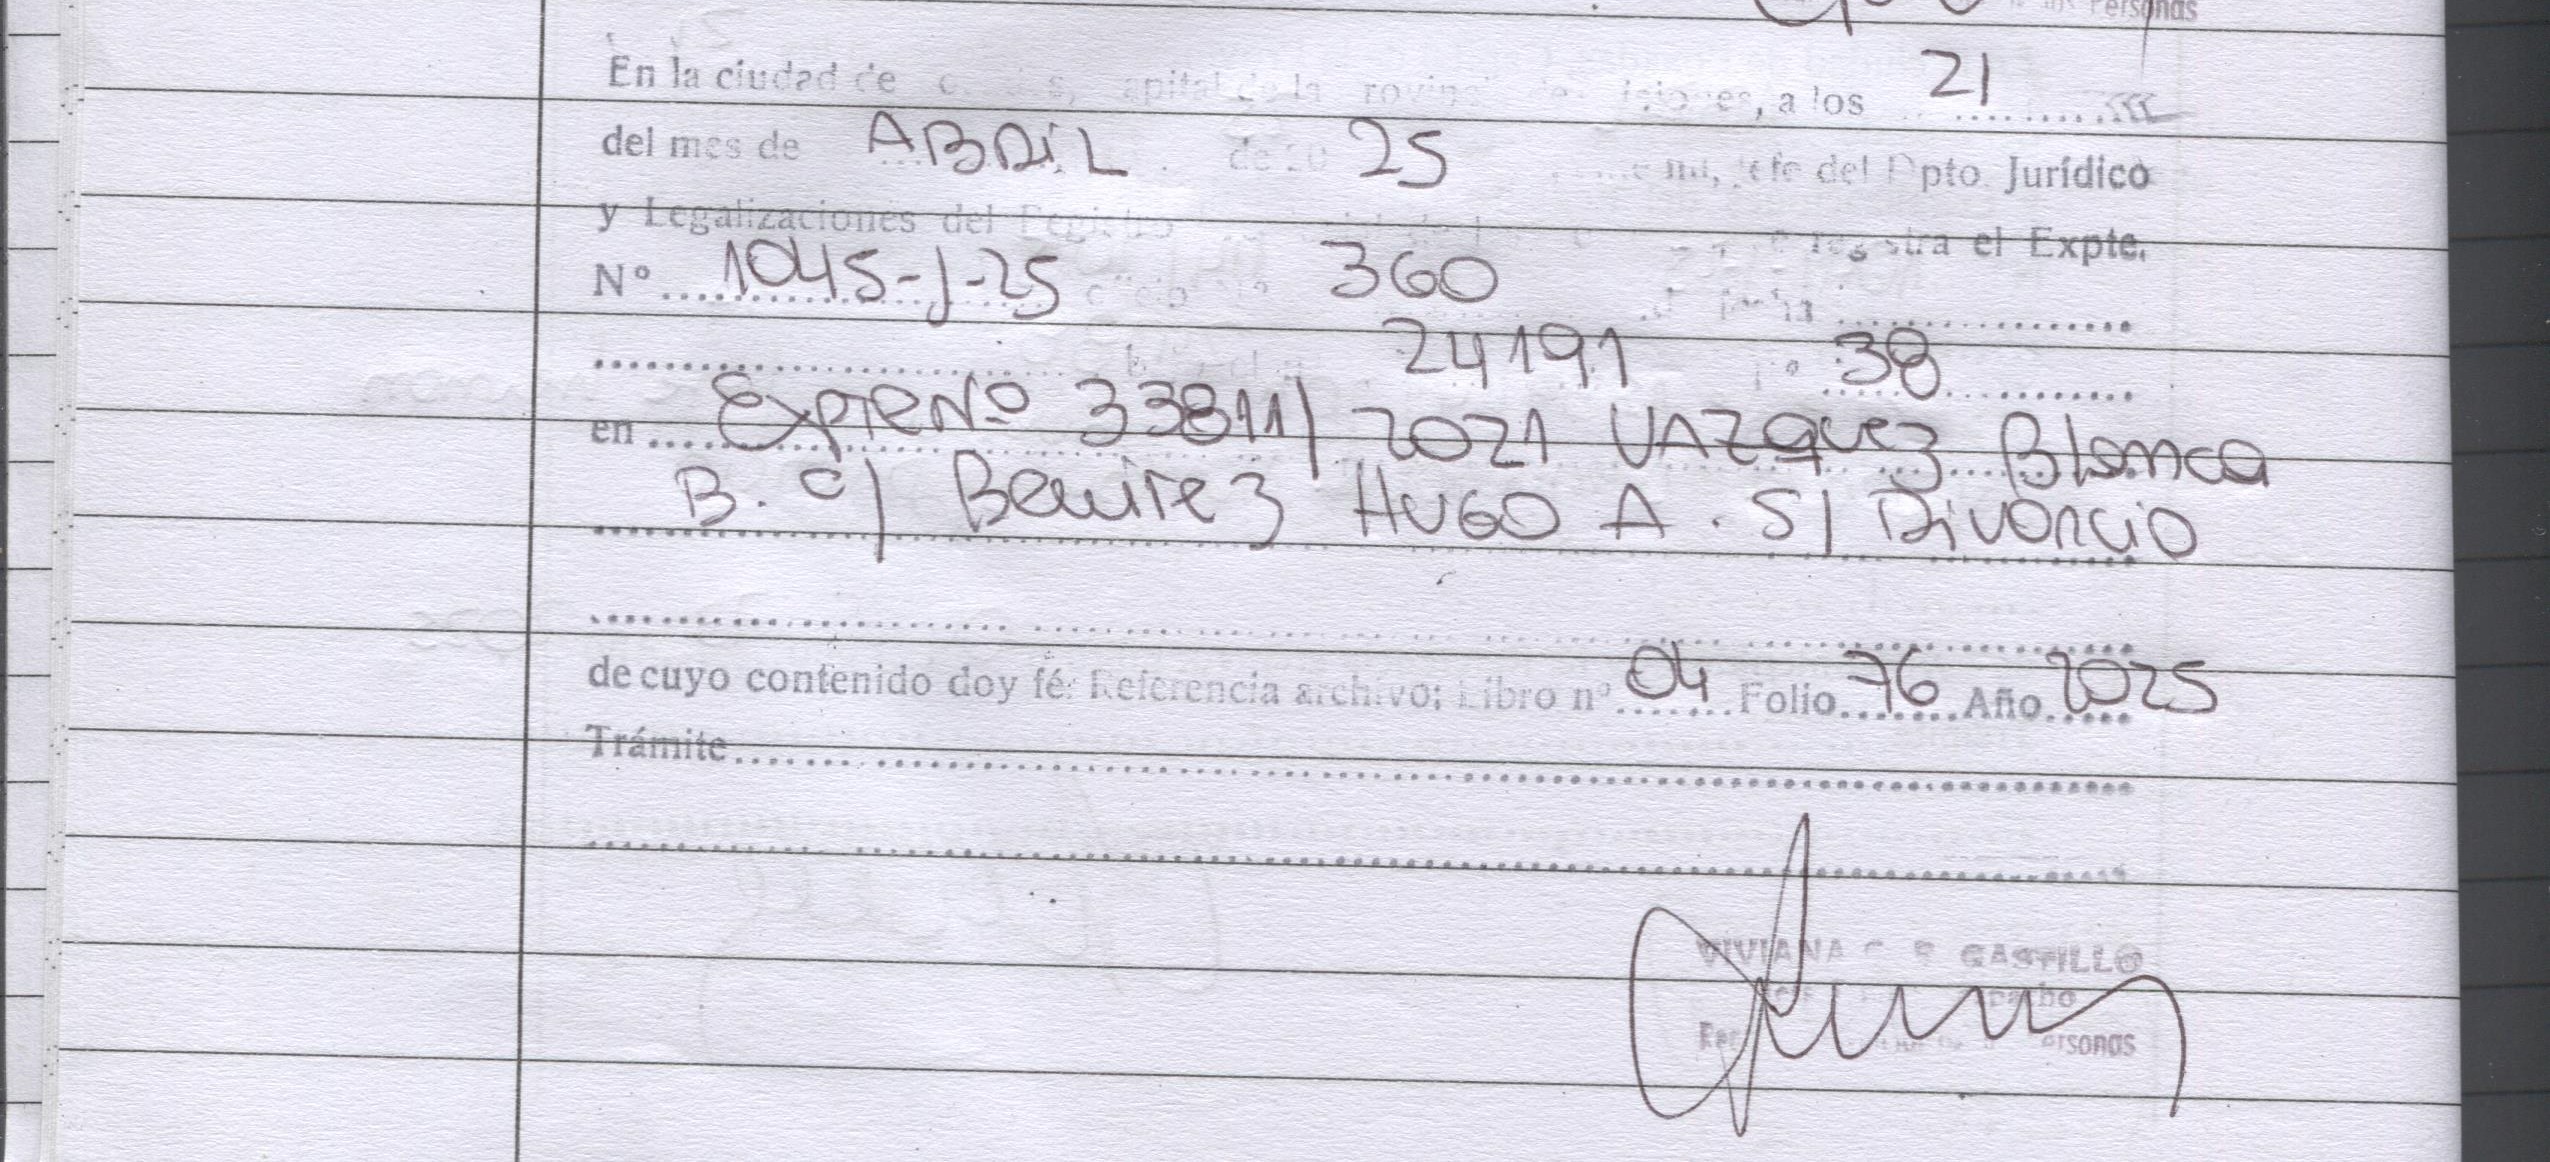 Personas
En la ciudad de a los 21
del mes de ABRIL de 20 25 Jefe del Dpto. Jurídico
y Legalizaciones del Registro registra el Expte.
Nº 1045-J-25 oficio Nº 360
de fecha
24191 Nº 38
en Expte Nº 33811/2021 VAZquez Blanca
B. c/ Benitez HUGO A. S/ Divorcio
de cuyo contenido doy fé: Referencia archivo: Libro nº 04 Folio 76 Año 2025
Trámite
VIVIANA CASTILLO
Personas